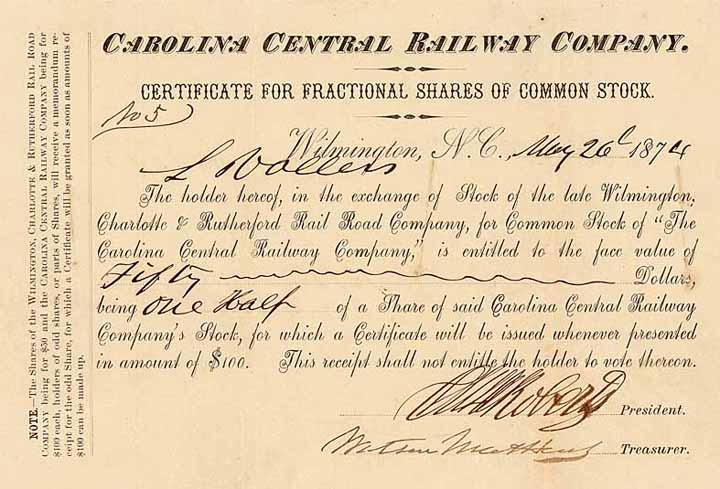 CAROLINA CENTRAL RAILWAY COMPANY.
CERTIFICATE FOR FRACTIONAL SHARES OF COMMON STOCK.
No 5
Wilmington, N. C., May 26 1874
The holder hereof, in the exchange of Stock of the late Wilmington,
Charlotte & Rutherford Rail Road Company, for Common Stock of "The
Carolina Central Railway Company," is entitled to the face value of
Fifty Dollars,
being One Half of a Share of said Carolina Central Railway
Company's Stock, for which a Certificate will be issued whenever presented
in amount of $100. This receipt shall not entitle the holder to vote thereon.
President.
Treasurer.
NOTE.—The Shares of the WILMINGTON, CHARLOTTE & RUTHERFORD RAIL ROAD
COMPANY being for $50 and the CAROLINA CENTRAL RAILWAY COMPANY being for
$100 each, holders of odd shares, or parts of Shares, will receive a memorandum re-
ceipt for the odd Share, for which a Certificate will be granted as soon as amounts of
$100 can be made up.